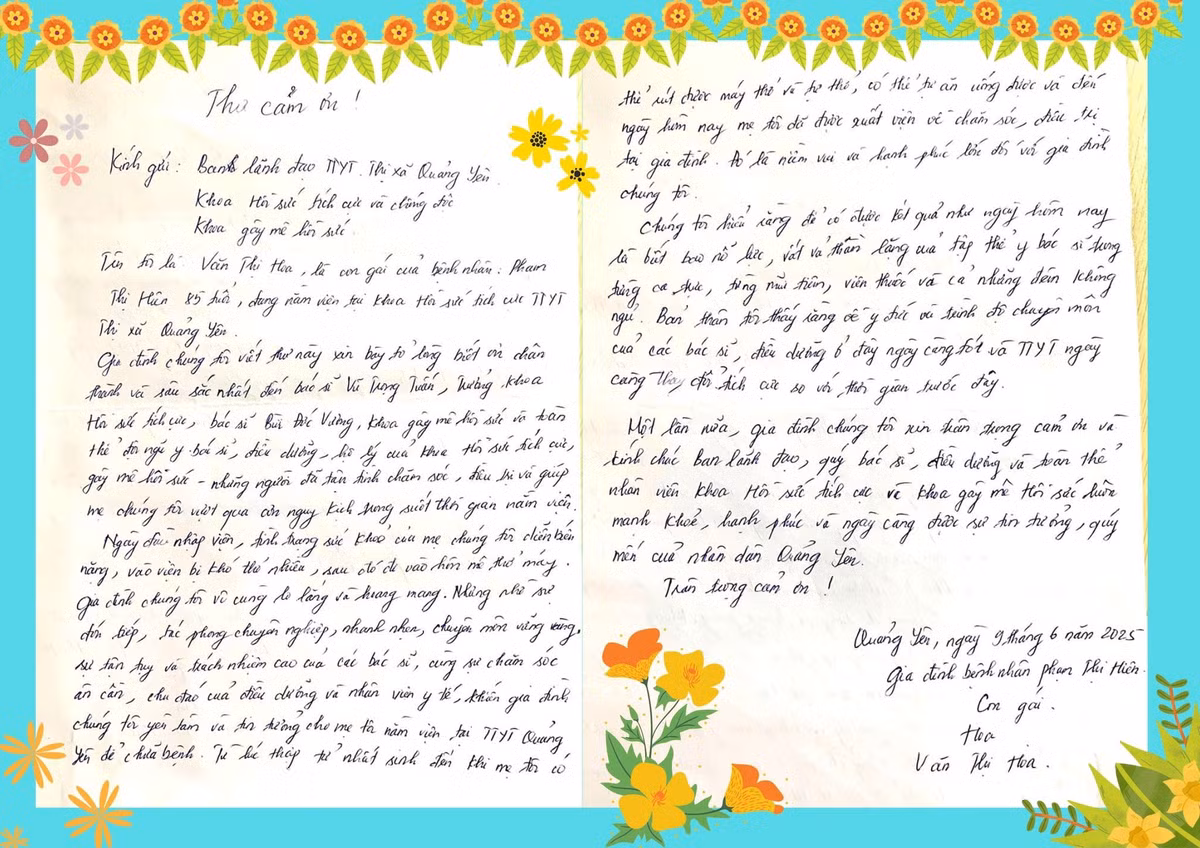 Thư cảm ơn !
Kính gửi : Banh lãnh đạo TTYT Thị xã Quảng Yên
Khoa Hồi sức tích cực và chống độc
Khoa gây mê hồi sức
Tên tôi là Văn Thị Hoa, là con gái của bệnh nhân : Phạm
Thị Hiên 85 tuổi, đang nằm viện tại khoa Hồi sức tích cực TTYT
Thị xã Quảng Yên.
Gia đình chúng tôi viết thư này xin bày tỏ lòng biết ơn chân
thành và sâu sắc nhất đến bác sĩ Vũ Trọng Tuấn, Trưởng khoa
Hồi sức tích cực, bác sĩ Bùi Đức Vượng, khoa gây mê hồi sức và toàn
thể đội ngũ y bác sĩ, điều dưỡng, hộ lý của khoa Hồi sức tích cực,
gây mê hồi sức - những người đã tận tình chăm sóc, điều trị và giúp
mẹ chúng tôi vượt qua cơn nguy kịch trong suốt thời gian nằm viện.
Ngày đầu nhập viện, tình trạng sức khoẻ của mẹ chúng tôi diễn biến
nặng, vào viện bị khó thở nhiều, sau đó đi vào hôn mê thở máy.
Gia đình chúng tôi vô cùng lo lắng và hoang mang. Nhưng nhờ sự
đón tiếp, tác phong chuyên nghiệp, nhanh nhẹn, chuyên môn vững vàng,
sự tận tụy và trách nhiệm cao của các bác sĩ, cùng sự chăm sóc
ân cần, chu đáo của điều dưỡng và nhân viên y tế, khiến gia đình
chúng tôi yên tâm và tin tưởng cho mẹ tôi nằm viện tại TTYT Quảng
Yên để chữa bệnh. Từ lúc thập tử nhất sinh đến khi mẹ tôi có
thể rút được máy thở và tự thở, có thể tự ăn uống được và đến
ngày hôm nay mẹ tôi đã được xuất viện về chăm sóc, điều trị
tại gia đình. Đó là niềm vui và hạnh phúc lớn đối với gia đình
chúng tôi.
Chúng tôi hiểu rằng để có được kết quả như ngày hôm nay
là biết bao nỗ lực, vất vả thầm lặng của tập thể y bác sĩ trong
từng ca trực, từng mũi tiêm, viên thuốc và cả những đêm không
ngủ. Bản thân tôi thấy rằng về y đức và trình độ chuyên môn
của các bác sĩ, điều dưỡng ở đây ngày càng tốt và TTYT ngày
càng thay đổi tích cực so với thời gian trước đây.
Một lần nữa, gia đình chúng tôi xin trân trọng cảm ơn và
kính chúc Ban lãnh đạo, quý bác sĩ, điều dưỡng và toàn thể
nhân viên khoa Hồi sức tích cực và khoa gây mê Hồi sức luôn
mạnh khoẻ, hạnh phúc và ngày càng được sự tin tưởng, quý
mến của nhân dân Quảng Yên.
Trân trọng cảm ơn !
Quảng Yên, ngày 9 tháng 6 năm 2025
Gia đình bệnh nhân phạm Thị Hiên.
Con gái.
Hoa
Văn Thị Hoa.